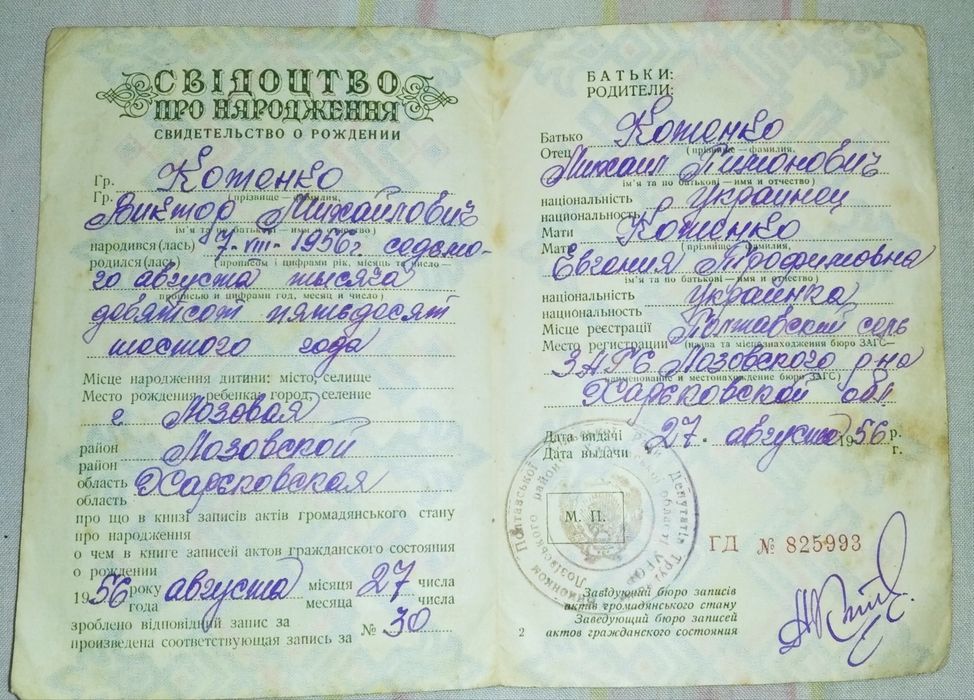 СВІДОЦТВО
ПРО НАРОДЖЕННЯ
СВИДЕТЕЛЬСТВО О РОЖДЕНИИ
Гр.
Гр.
Котенко
(прізвище – фамилия,
Виктор Михайлович
ім'я та по батькові – имя и отчество)
народився(лась) 7-VIII-1956г. седьмо-
родился(лась)
(прописом і цифрами рік, місяць та число –
го августа тысяча
прописью и цифрами год, месяц и число)
девятсот пятьдесят
шестого года
Місце народження дитини: місто, селище
Место рождения ребенка: город, селение
г. Лозовая
район Лозовской
район
область Харьковская
область
про що в книзі записів актів громадянського стану
про народження
о чем в книге записей актов гражданского состояния
о рождении
1956 року августа місяця 27 числа
года месяца числа
зроблено відповідний запис за № 30
произведена соответствующая запись за
БАТЬКИ:
РОДИТЕЛИ:
Батько Котенко
Отец (прізвище – фамилия,
Михаил Пимонович
ім'я та по батькові – имя и отчество)
національність украинец
национальность
Мати Котенко
Мать (прізвище – фамилия,
Евгения Трофимовна
ім'я та по батькові – имя и отчество)
національність украинка
национальность
Місце реєстрації Полтавский сель
Место регистрации (назва та місцезнаходження бюро ЗАГС–
ЗАГС Лозовского р-на
наименование и местонахождение бюро ЗАГС)
Харьковской обл
Дата видачі 27 августа 1956 р.
Дата выдачи г.
М. П.
ГД № 825993
Завідуючий бюро записів
актів громадянського стану
Заведующий бюро записей
актов гражданского состояния
2